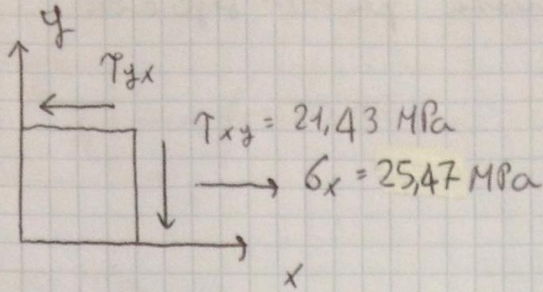 y
τyx
τxy = 21,43 MPa
σx = 25,47 MPa
x